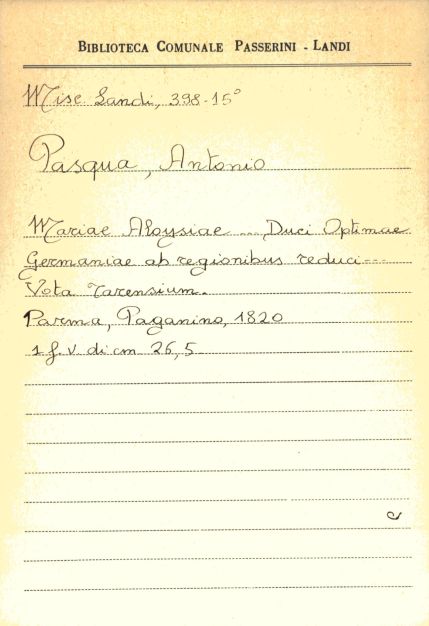 BIBLIOTECA COMUNALE PASSERINI - LANDI
Misc Landi, 398-15°
Pasqua, Antonio
Mariae Aloysiae ... Duci Optimae
Germaniae ab regionibus reduci ---
Vota Tarensium.
Parma, Paganino, 1820
1 f. v. di cm 26,5